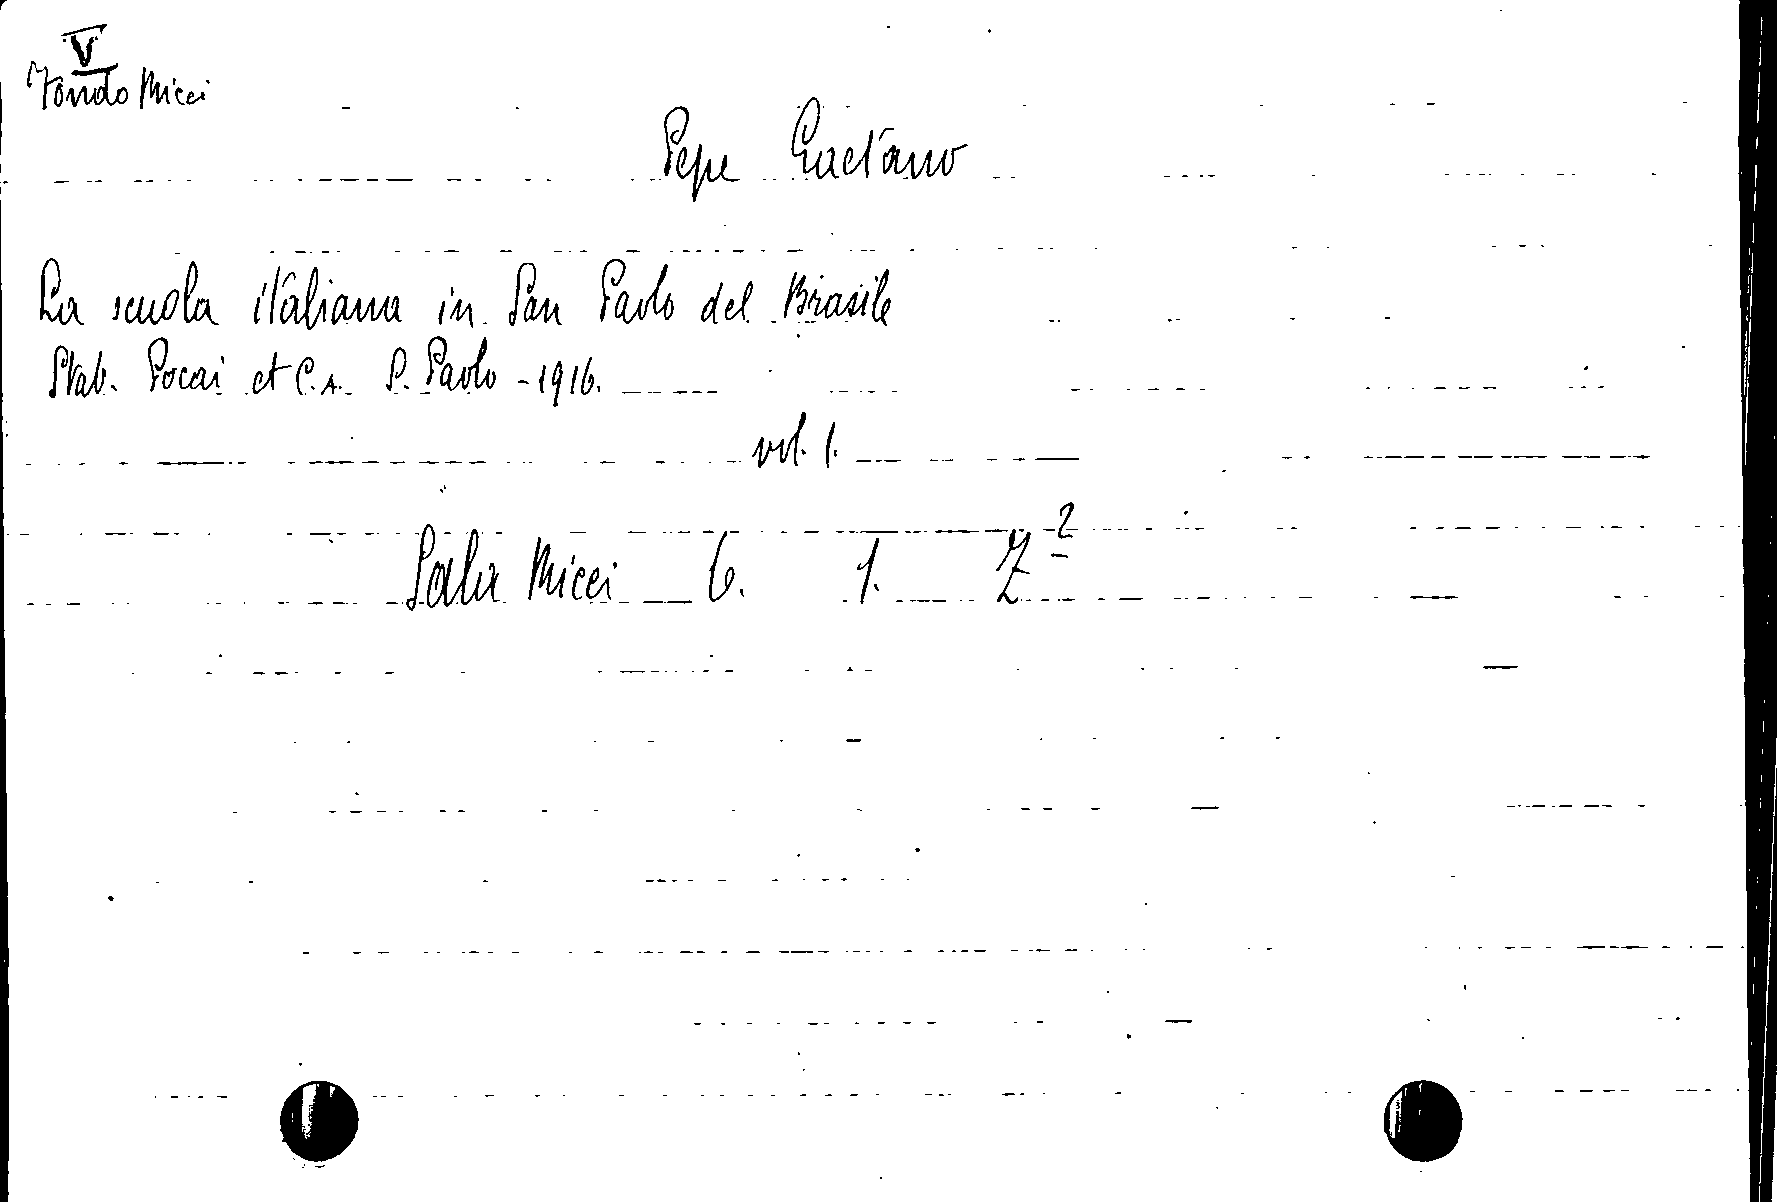 V
Fondo Micci
Pepe Gaetano
La scuola italiana in San Paolo del Brasile
Stab. Pocai et C.A. S. Paolo - 1916.
vol. 1.
Sala Micci 6. 1. Z²